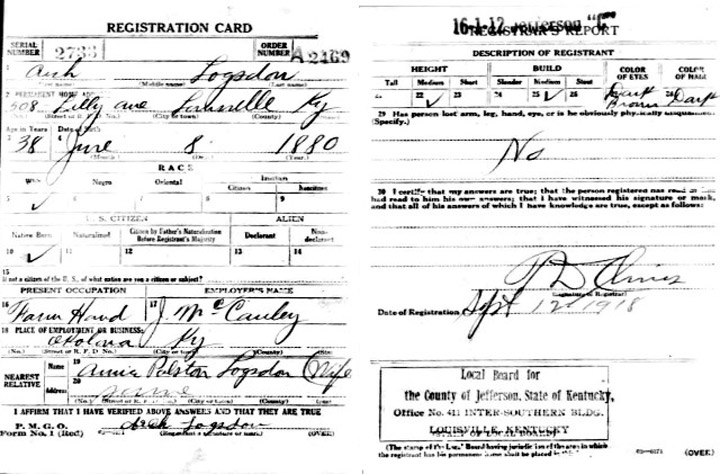 REGISTRATION CARD
SERIAL NUMBER 2733 ORDER NUMBER A2169
1 Arch Logsdon
(First name) (Middle name) (Last name)
2 PERMANENT HOME ADDRESS:
508 Lilly ave Louisville Ky
(No.) (Street or R. F. D. No.) (City or town) (County) (State)
Age in Years Date of Birth
3 38 4 June 8 1880
(Month.) (Day.) (Year.)
RACE
White Negro Oriental Indian
Citizen Noncitizen
5 ✓ 6 7 8 9
U. S. CITIZEN ALIEN
Native Born Naturalized Citizen by Father's Naturalization Before Registrant's Majority Declarant Non-declarant
10 ✓ 11 12 13 14
15
If not a citizen of the U. S., of what nation are you a citizen or subject?
PRESENT OCCUPATION EMPLOYER'S NAME
16 Farm Hand 17 J. McCauley
18 PLACE OF EMPLOYMENT OR BUSINESS:
Okolona Ky
(No.) (Street or R. F. D. No.) (City or town) (County) (State)
NEAREST RELATIVE Name 19 Annie Ralston Logsdon (Wife
Address 20 same
(No.) (Street or R. F. D. No.) (City or town) (County) (State)
I AFFIRM THAT I HAVE VERIFIED ABOVE ANSWERS AND THAT THEY ARE TRUE
P. M. G. O.
Form No. 1 (Red) Arch Logsdon
(Registrant's signature or mark) (OVER)
16-1-12 Jefferson "C"
REGISTRAR'S REPORT
DESCRIPTION OF REGISTRANT
HEIGHT BUILD COLOR OF EYES COLOR OF HAIR
Tall Medium Short Slender Medium Stout
21 22 ✓ 23 24 25 ✓ 26 Dark Brown 28 Dark
29 Has person lost arm, leg, hand, eye, or is he obviously physically disqualified?
(Specify.)
No
30 I certify that my answers are true; that the person registered has read or has
had read to him his own answers; that I have witnessed his signature or mark,
and that all of his answers of which I have knowledge are true, except as follows:
(Signature of Registrar)
Date of Registration Sept 12 1918
Local Board for
the County of Jefferson, State of Kentucky,
Office No. 411 INTER-SOUTHERN BLDG.
LOUISVILLE, KENTUCKY
(STAMP OF LOCAL BOARD)
(The stamp of the Local Board having jurisdiction of the area in which
the registrant has his permanent home shall be placed in this box.)
(OVER)